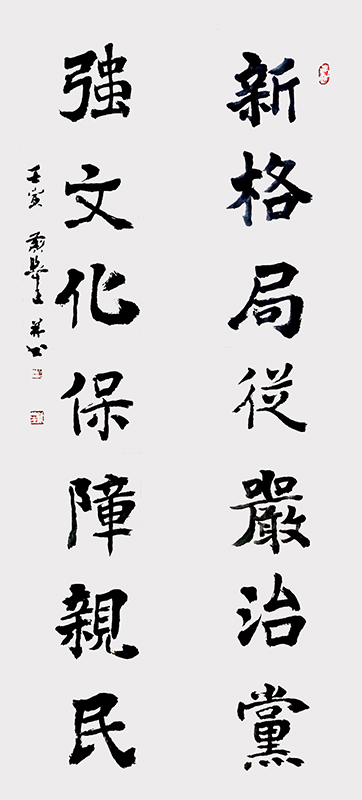 新格局從嚴治黨
强文化保障親民
壬寅